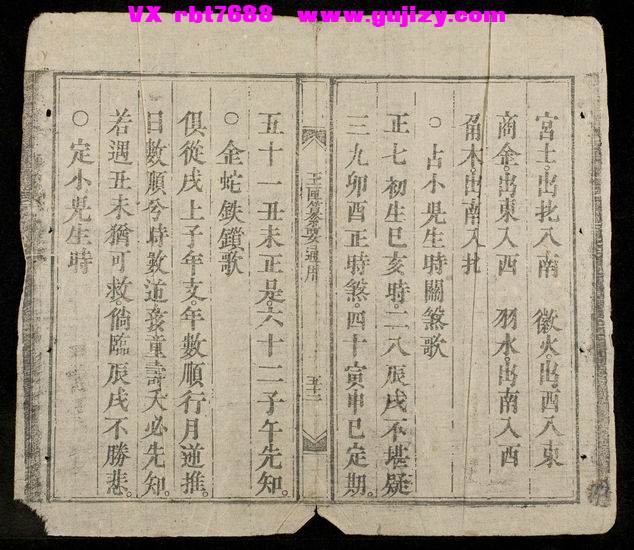 VX rbt7688 www.gujizy.com
宮土出北入南 徵火出酉入東
商金出東入西 羽水出南入西
角木出南入北
○占小児生時關煞歌
正七初生巳亥時二八辰戌不堪疑
三九卯酉正時煞四十寅申已定期
玉匣纂要通用
五十一丑未正是六十二子午先知
○金蛇鉄鎖歌
俱從戌上子年支年數順行月逆推
日數順兮時數逆孩童壽夭必先知
若遇丑未猶可救倘臨辰戌不勝悲
○定小児生時